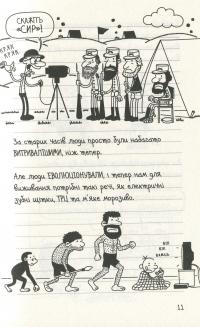 СКАЖІТЬ
«СИР»!
КРЯК
КРЯК
За старих часів люди просто були набагато
ВИТРИВАЛІШИМИ, ніж тепер.
Але люди ЕВОЛЮЦІОНУВАЛИ, і тепер нам для
виживання потрібні такі речі, як електричні
зубні щітки, ТРЦ та м'яке морозиво.
11